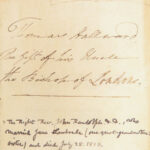 Thomas Hallward
The gift of his Uncle
the Bishop of London.
The Right Rev. John Randolph D.D., who
married Jane Lambarde (
notes) and died July 28. 1813.